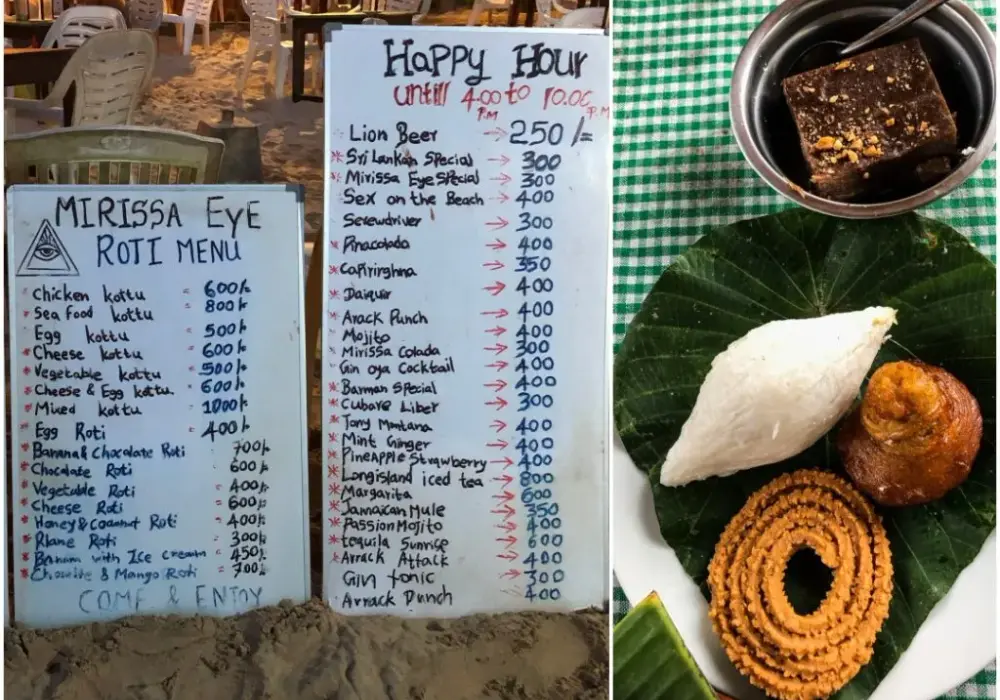 MIRISSA EYE
ROTI MENU
Chicken kottu = 600/-
Sea food kottu = 800/-
Egg kottu = 500/-
Cheese kottu = 600/-
Vegetable kottu = 500/-
Cheese & Egg kottu = 600/-
Mixed kottu = 1000/-
Egg Roti = 400/-
Banana & Chocolate Roti 700/-
Chocolate Roti - 600/-
Vegetable Roti - 400/-
Cheese Roti = 600/-
Honey & Coconut Roti = 400/-
Plane Roti = 300/-
Banana with Ice cream = 450/-
Choclite & Mango Roti = 700/-
COME & ENJOY
Happy Hour
Untill 4.00 P.M to 10.00 P.M
Lion Beer → 250/=
Sri Lankan Special → 300
Mirissa Eye Special → 300
Sex on the Beach → 400
Screwdriver → 300
Pinacolada → 400
Capirirghna → 350
Daiquir → 400
Arack Punch → 400
Mojito → 400
Mirissa Colada → 300
Gin oya Cocktail → 400
Barman Special → 400
Cubare Liber → 300
Tony Montana → 400
Mint Ginger → 400
PineApple Strawberry → 400
Longisland iced tea → 800
Margarita → 600
Jamaican Mule → 350
Passion Mojito → 400
tequila Sunrise → 600
Arrack Attack → 400
Gin tonic → 300
Arrack Punch → 400